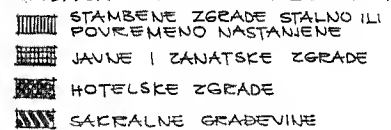 STAMBENE ZGRADE STALNO ILI
POVREMENO NASTANJENE
JAVNE I ZANATSKE ZGRADE
HOTELSKE ZGRADE
SAKRALNE GRAĐEVINE